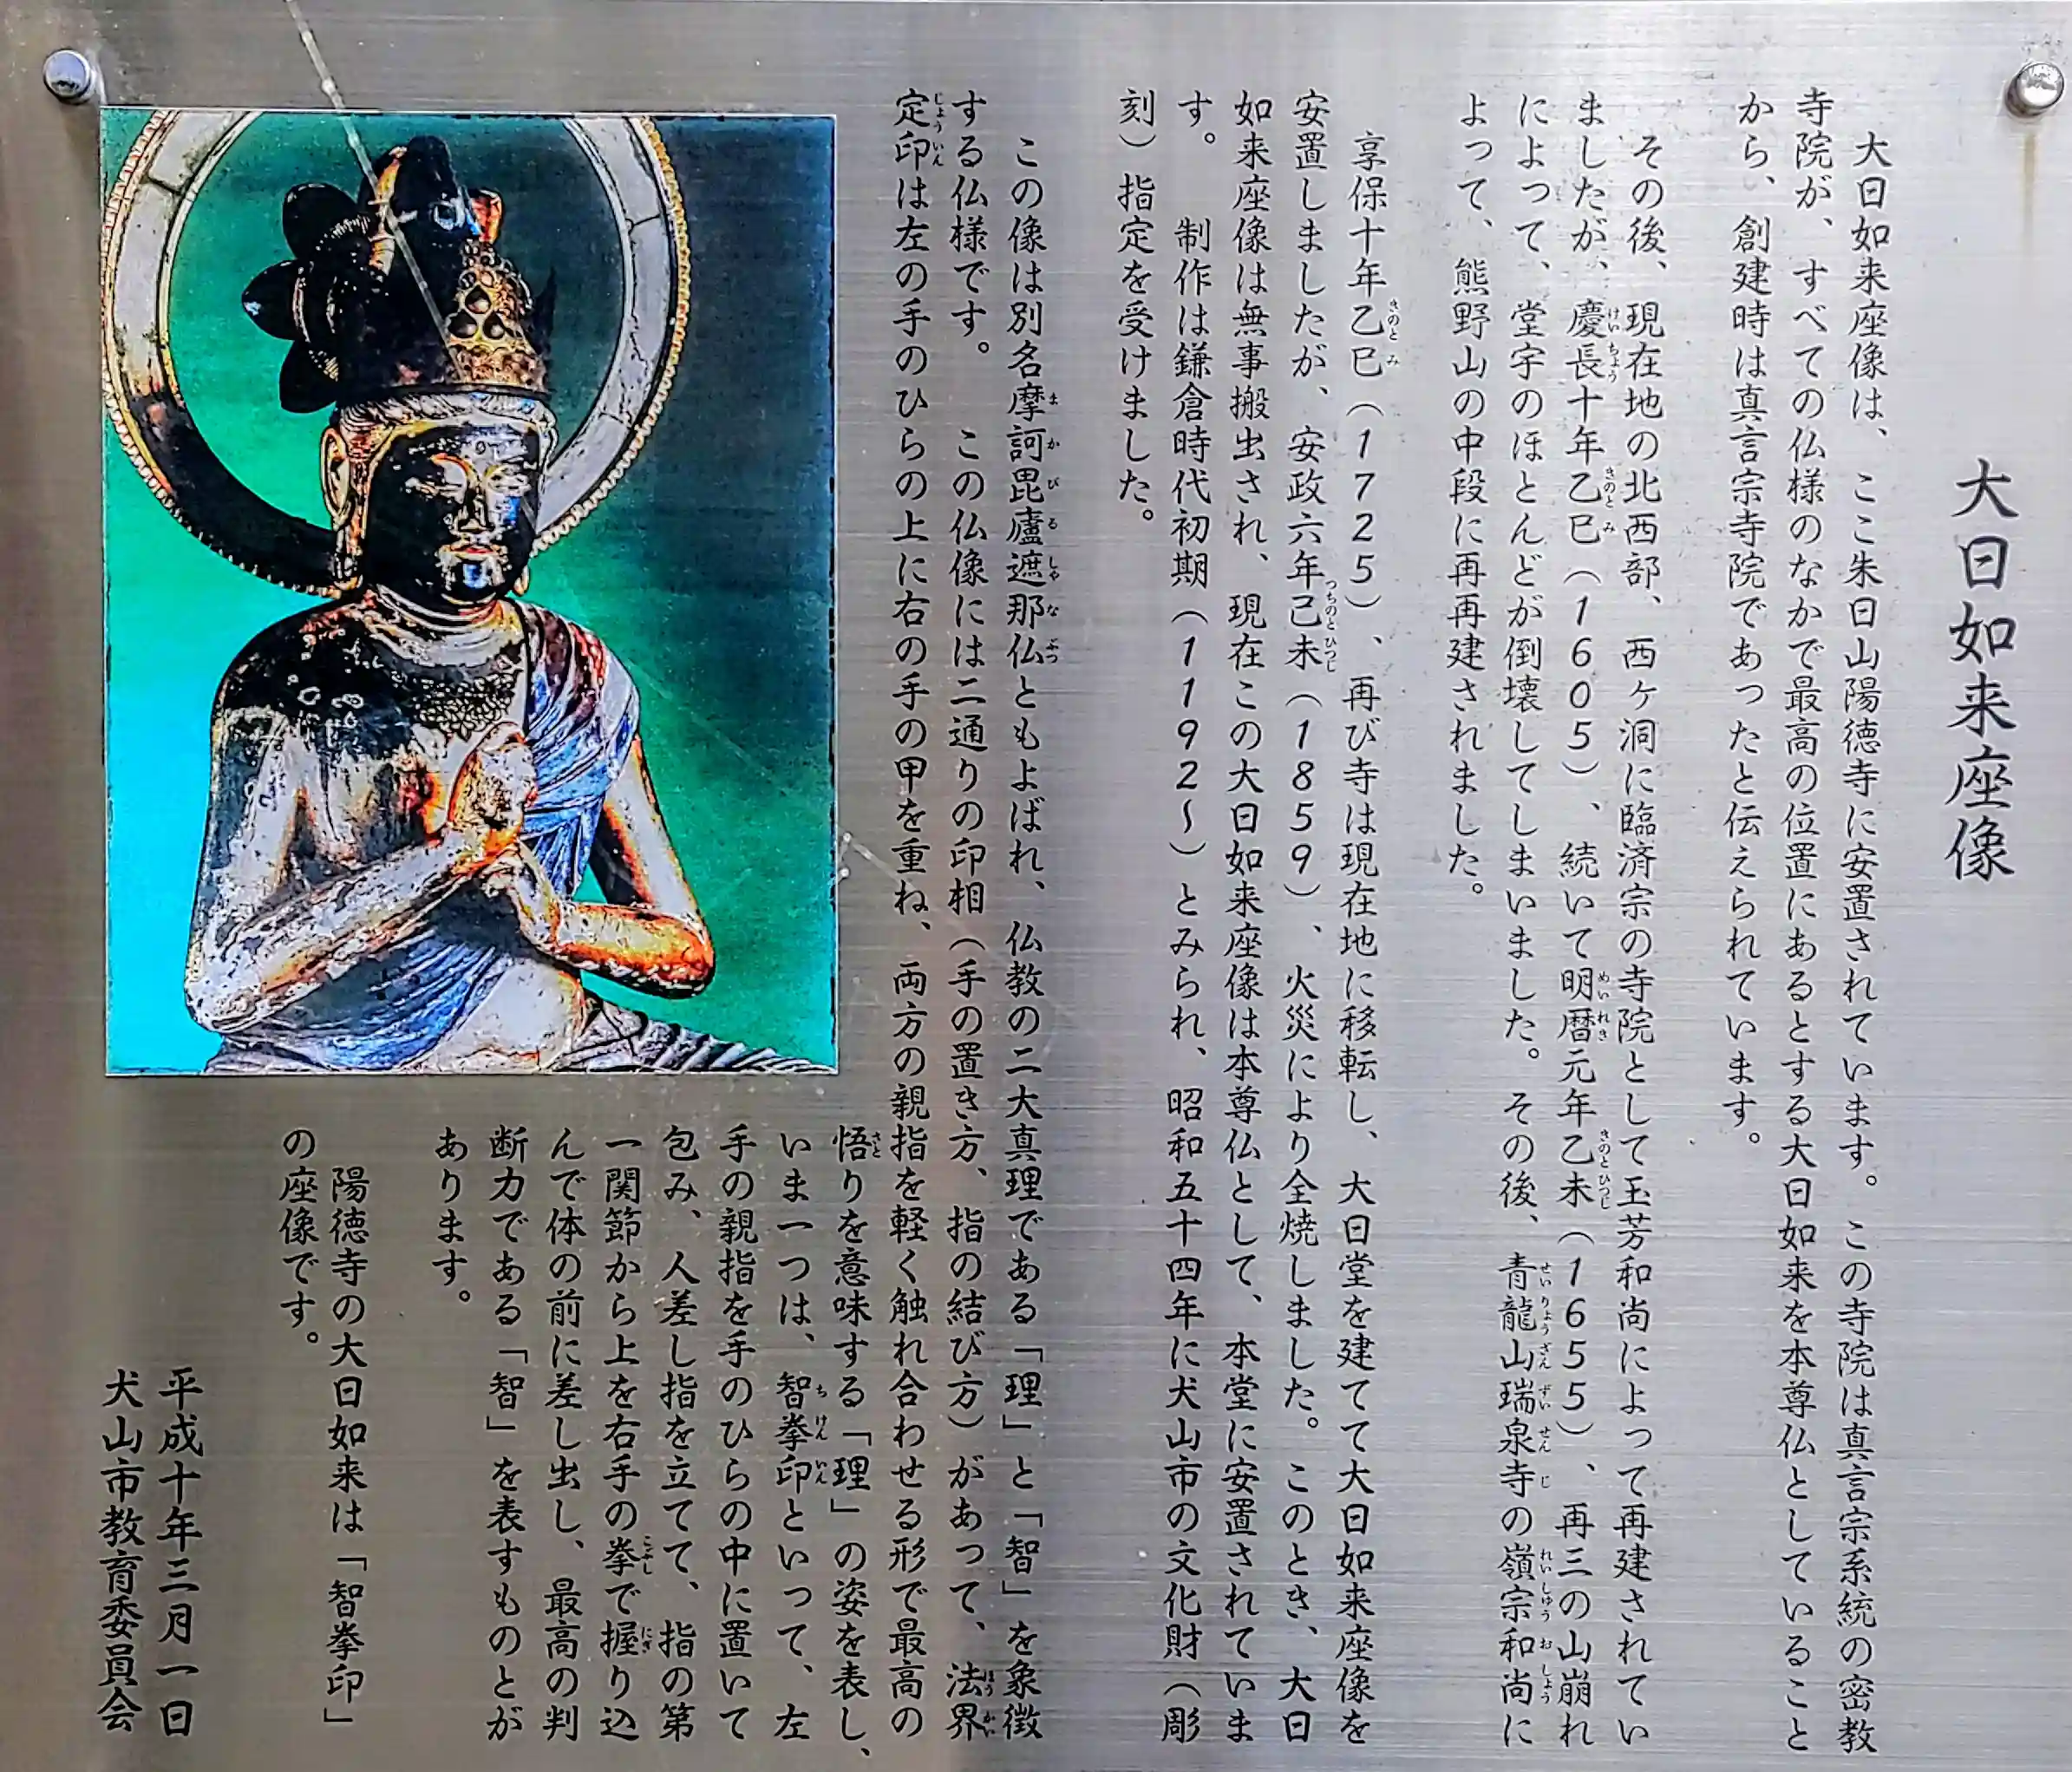 大日如来座像
大日如来座像は、ここ朱日山陽徳寺に安置されています。この寺院は真言宗系統の密教
寺院が、すべての仏様のなかで最高の位置にあるとする大日如来を本尊仏としていること
から、創建時は真言宗寺院であったと伝えられています。
その後、現在地の北西部、西ヶ洞に臨済宗の寺院として玉芳和尚によって再建されてい
ましたが、慶長十年乙巳（1605）、続いて明暦元年乙未（1655）、再三の山崩れ
によって、堂宇のほとんどが倒壊してしまいました。その後、青龍山瑞泉寺の嶺宗和尚に
よって、熊野山の中段に再再建されました。
享保十年乙巳（1725）、再び寺は現在地に移転し、大日堂を建てて大日如来座像を
安置しましたが、安政六年己未（1859）、火災により全焼しました。このとき、大日
如来座像は無事搬出され、現在この大日如来座像は本尊仏として、本堂に安置されていま
す。　制作は鎌倉時代初期（1192〜）とみられ、昭和五十四年に犬山市の文化財（彫
刻）指定を受けました。
この像は別名摩訶毘廬遮那仏ともよばれ、仏教の二大真理である「理」と「智」を象徴
する仏様です。　この仏像には二通りの印相（手の置き方、指の結び方）があって、法界
定印は左の手のひらの上に右の手の甲を重ね、両方の親指を軽く触れ合わせる形で最高の
悟りを意味する「理」の姿を表し、
いま一つは、智拳印といって、左
手の親指を手のひらの中に置いて
包み、人差し指を立てて、指の第
一関節から上を右手の拳で握り込
んで体の前に差し出し、最高の判
断力である「智」を表すものとが
あります。
陽徳寺の大日如来は「智拳印」
の座像です。
平成十年三月一日
犬山市教育委員会